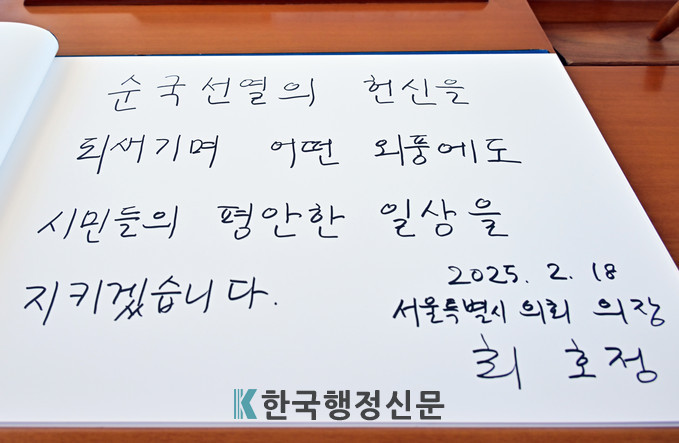 순국선열의 헌신을
되새기며 어떤 외풍에도
시민들의 평안한 일상을
지키겠습니다.
2025. 2. 18
서울특별시 의회 의장
최호정
한국행정신문